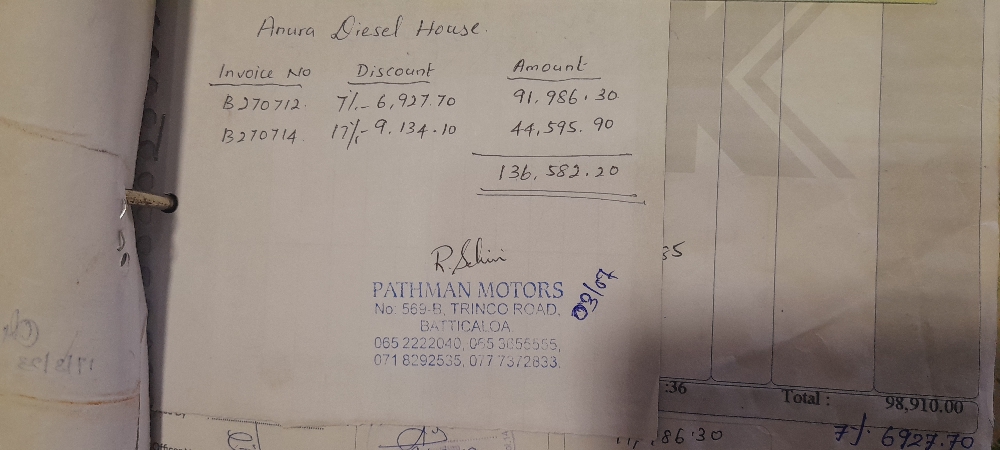 Anura Diesel House.
Invoice No Discount Amount
B270712. 7/.- 6,927.70 91,986.30
B270714. 17/.- 9,134.10 44,595.90
136,582.20
R. Selvi
PATHMAN MOTORS
No: 569-B, TRINCO ROAD,
BATTICALOA.
065 2222040, 065 3656555,
071 8292535, 077 7372833.
03/07
35
:36 Total : 98,910.00
86.30 7/. 6927.70